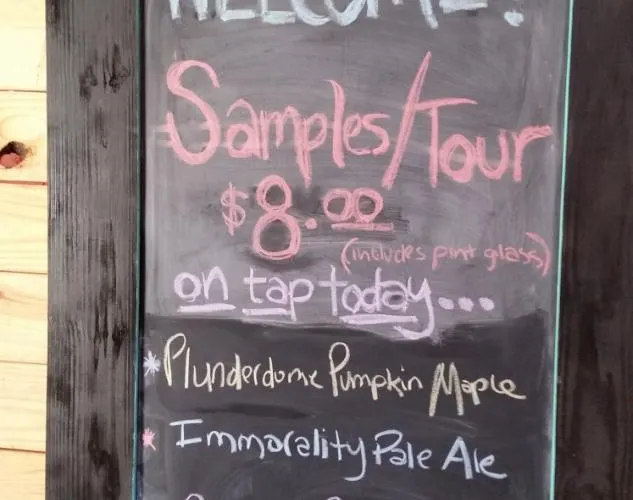 WELCOME!
Samples/Tour
$8.00
(includes pint glass)
on tap today...
* Plunderdome Pumpkin Maple
* Immorality Pale Ale